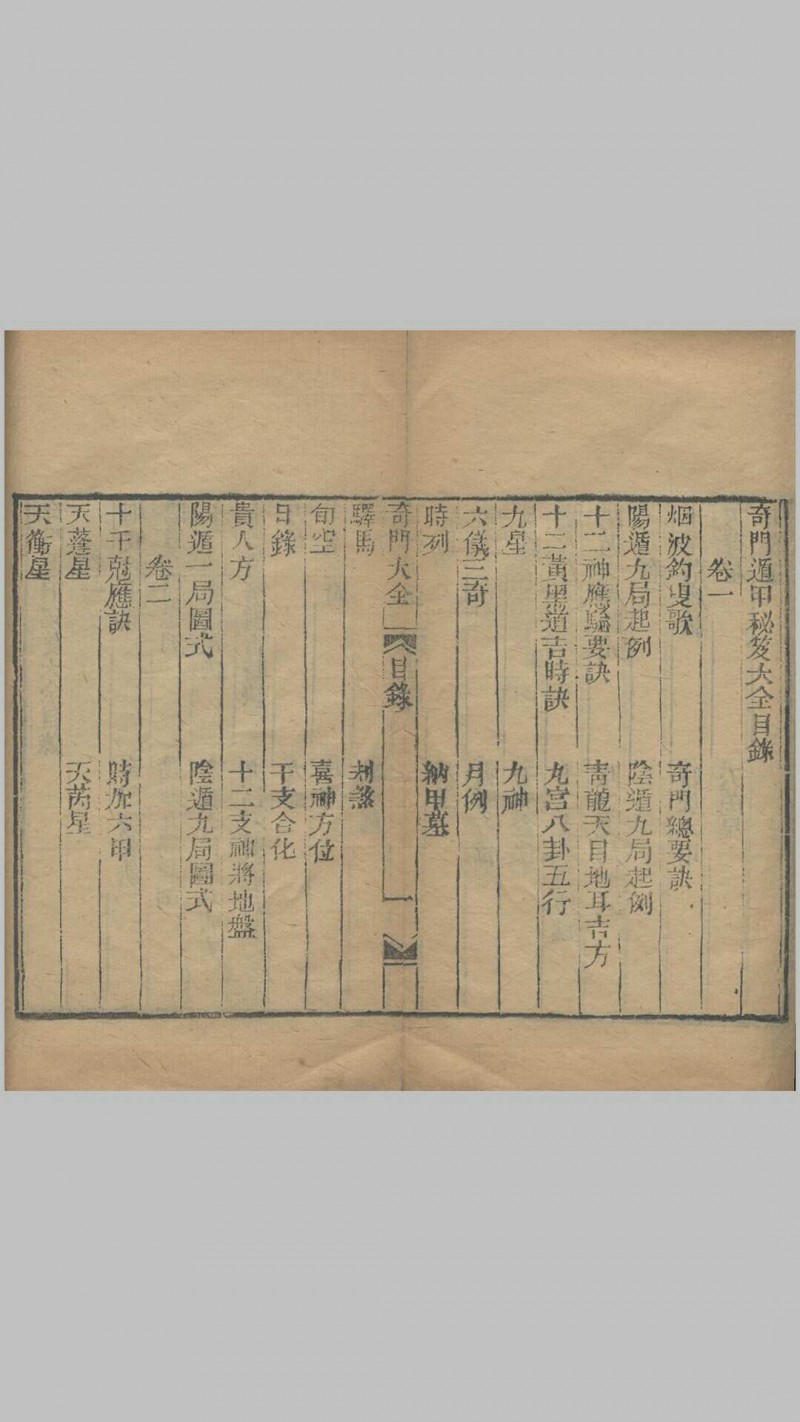 奇門遁甲秘笈大全目錄
卷一
烟波釣叟歌 奇門總要訣
陽遁九局起例 陰遁九局起例
十二神應驗要訣 青龍天目地耳吉方
十二黃黑道吉時訣 九宮八卦五行
九星 九神
六儀三奇 月例
時列 納甲墓
奇門大全 目錄 一
驛馬 刑煞
旬空 喜神方位
日錄 干支合化
貴人方 十二支神將地盤
陽遁一局圖式 陰遁九局圖式
卷二
十干尅應訣 時加六甲
天蓬星 天芮星
天衝星